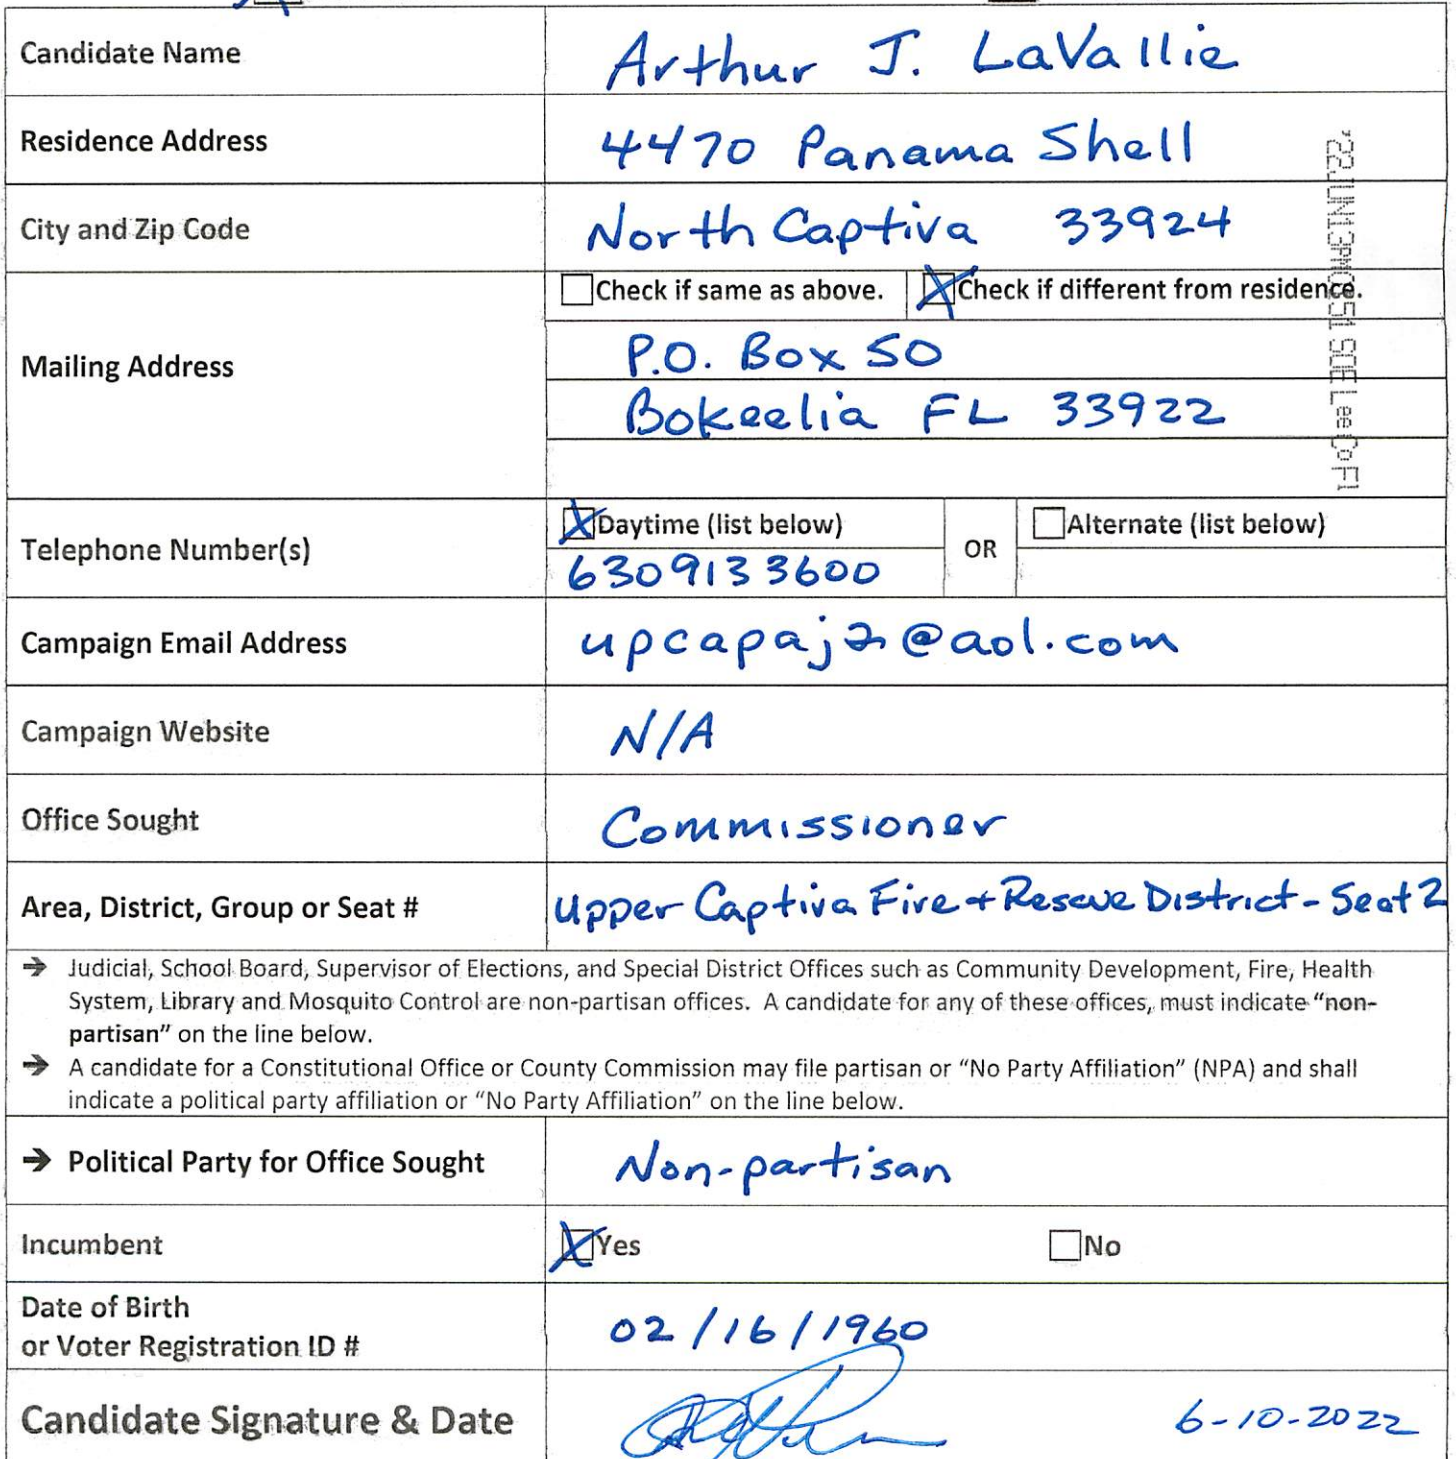 Candidate Name Arthur J. LaVallie
Residence Address 4470 Panama Shell
City and Zip Code North Captiva 33924
Check if same as above. Check if different from residence.
Mailing Address
P.O. Box 50
Bokeelia FL 33922
'22JUN13PM0351 SOE Lee Co Fl
Telephone Number(s)
Daytime (list below) OR Alternate (list below)
6309133600
Campaign Email Address upcapaj2@aol.com
Campaign Website N/A
Office Sought Commissioner
Area, District, Group or Seat # Upper Captiva Fire + Rescue District - Seat 2
→ Judicial, School Board, Supervisor of Elections, and Special District Offices such as Community Development, Fire, Health
System, Library and Mosquito Control are non-partisan offices. A candidate for any of these offices, must indicate "non-
partisan" on the line below.
→ A candidate for a Constitutional Office or County Commission may file partisan or "No Party Affiliation" (NPA) and shall
indicate a political party affiliation or "No Party Affiliation" on the line below.
→ Political Party for Office Sought Non-partisan
Incumbent Yes No
Date of Birth
or Voter Registration ID # 02/16/1960
Candidate Signature & Date 6-10-2022